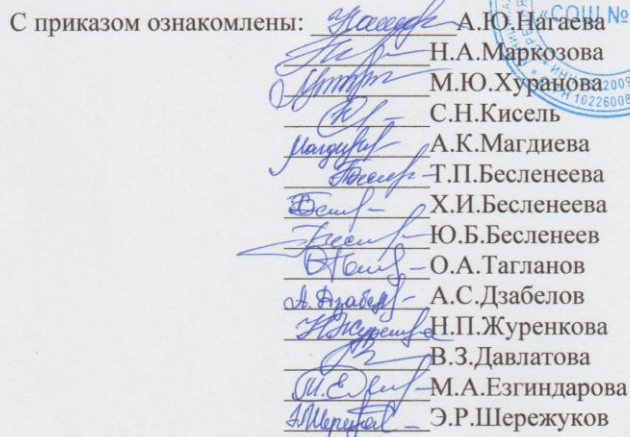 С приказом ознакомлены: А.Ю.Нагаева
Н.А.Маркозова
М.Ю.Хуранова
С.Н.Кисель
Магдиев А.К.Магдиева
Т.П.Бесленеева
Х.И.Бесленеева
Ю.Б.Бесленеев
О.А.Тагланов
А.Дзабел А.С.Дзабелов
Н.П.Журенкова
В.З.Давлатова
М.А.Езгиндарова
Э.Р.Шережуков
«СОШ №